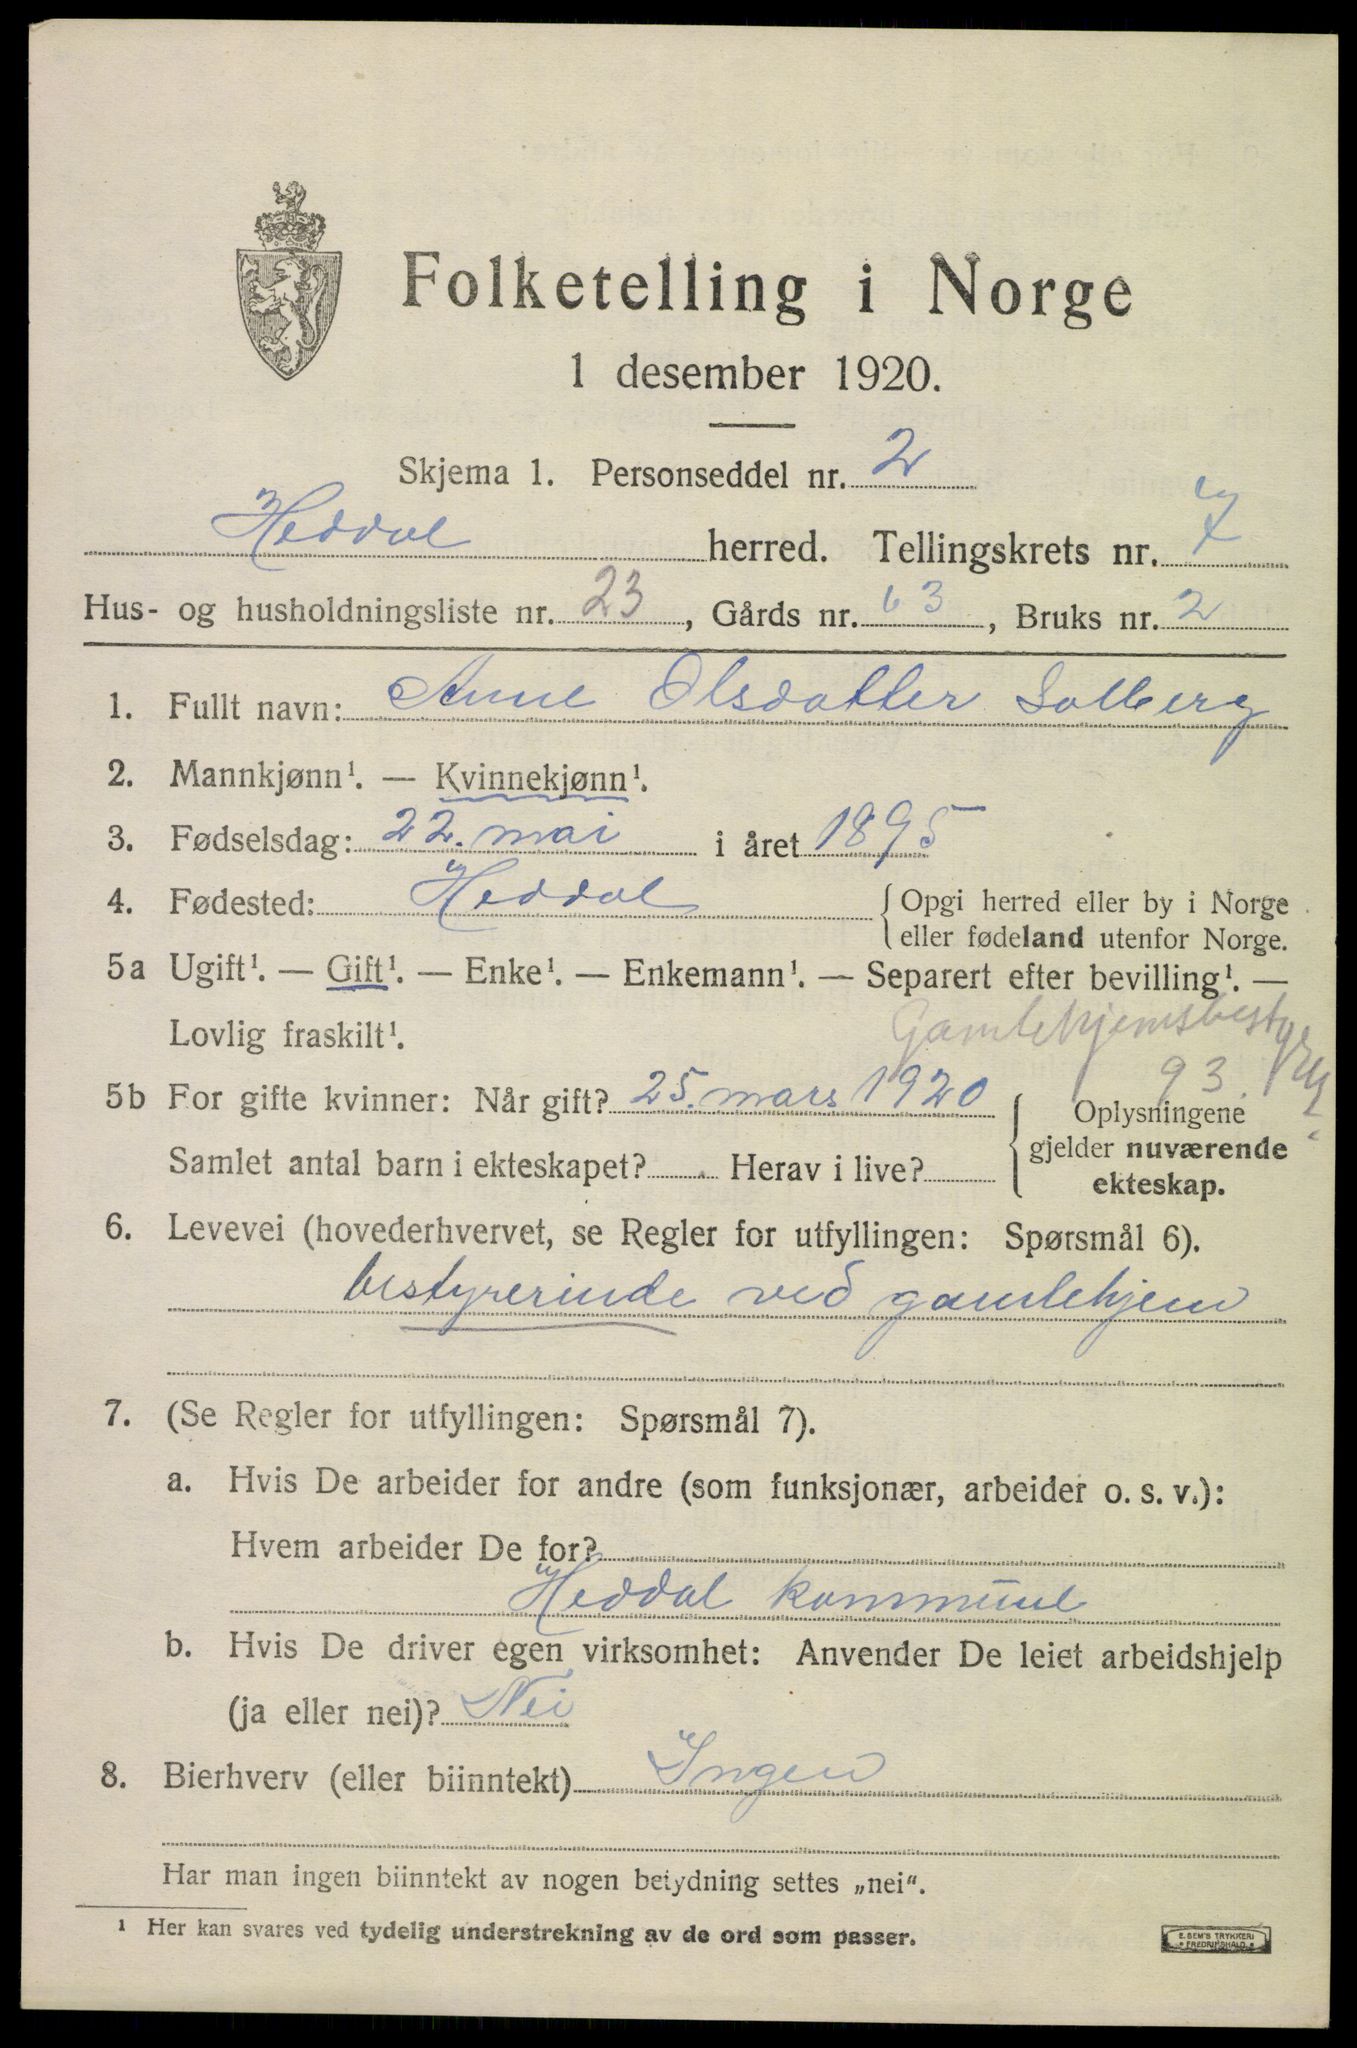 Folketelling i Norge
1 desember 1920.
Skjema 1. Personseddel nr. 2
Heddal herred. Tellingskrets nr. 7
Hus- og husholdningsliste nr. 23, Gårds nr. 63, Bruks nr. 2
1. Fullt navn: Anne Olsdatter Solberg
2. Mannkjønn¹. — Kvinnekjønn¹.
3. Fødselsdag: 22. mai i året 1895
4. Fødested: Heddal { Opgi herred eller by i Norge
eller fødeland utenfor Norge.
5a Ugift¹. — Gift¹. — Enke¹. — Enkemann¹. — Separert efter bevilling¹. —
Lovlig fraskilt¹.
Gamlehjemsbestyrer
93
5b For gifte kvinner: Når gift? 25. mars 1920 { Oplysningene
gjelder nuværende
ekteskap.
Samlet antal barn i ekteskapet? Herav i live?
6. Levevei (hovederhvervet, se Regler for utfyllingen: Spørsmål 6).
bestyrerinde ved gamlehjem
7. (Se Regler for utfyllingen: Spørsmål 7).
a. Hvis De arbeider for andre (som funksjonær, arbeider o. s. v.):
Hvem arbeider De for?
Heddal kommune
b. Hvis De driver egen virksomhet: Anvender De leiet arbeidshjelp
(ja eller nei)? Nei
8. Bierhverv (eller biinntekt) Ingen
Har man ingen biinntekt av nogen betydning settes „nei".
¹ Her kan svares ved tydelig understrekning av de ord som passer.
E. SEM'S TRYKKERI
FREDRIKSHALD